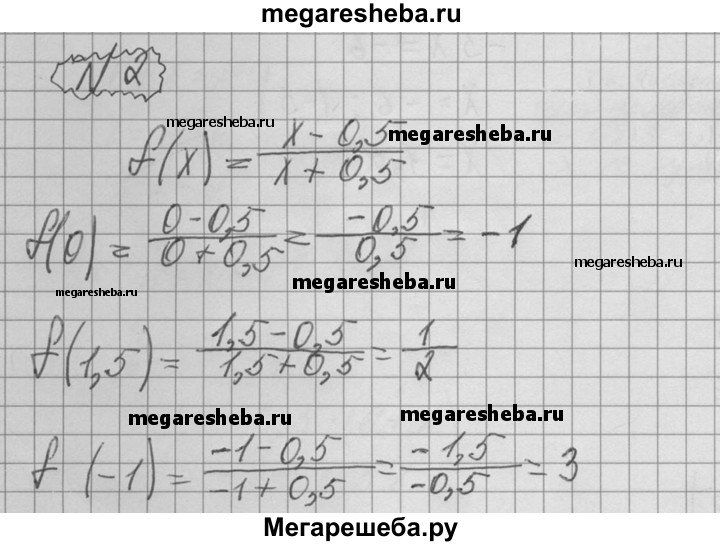 megaresheba.ru
№2
megaresheba.ru
f(x) = (x - 0,5)/(x + 0,5)
megaresheba.ru
f(0) = (0 - 0,5)/(0 + 0,5) = (-0,5)/(0,5) = -1
megaresheba.ru
megaresheba.ru
megaresheba.ru
f(1,5) = (1,5 - 0,5)/(1,5 + 0,5) = 1/2
megaresheba.ru
megaresheba.ru
f(-1) = (-1 - 0,5)/(-1 + 0,5) = (-1,5)/(-0,5) = 3
Мегарешеба.ру